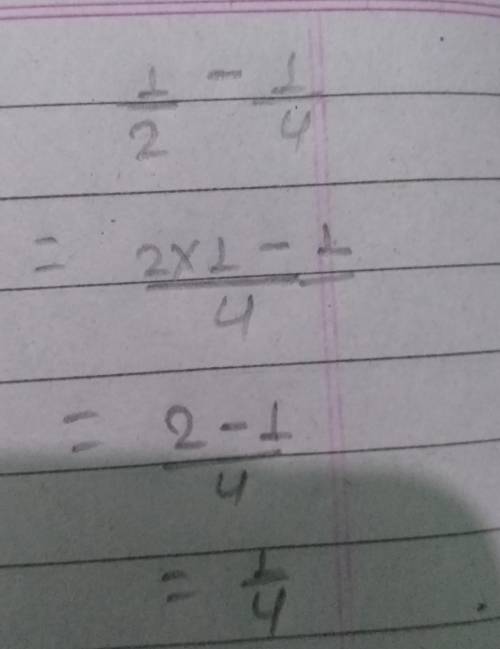 1/2 - 1/4
= (2×1 - 1)/4
= (2 - 1)/4
= 1/4